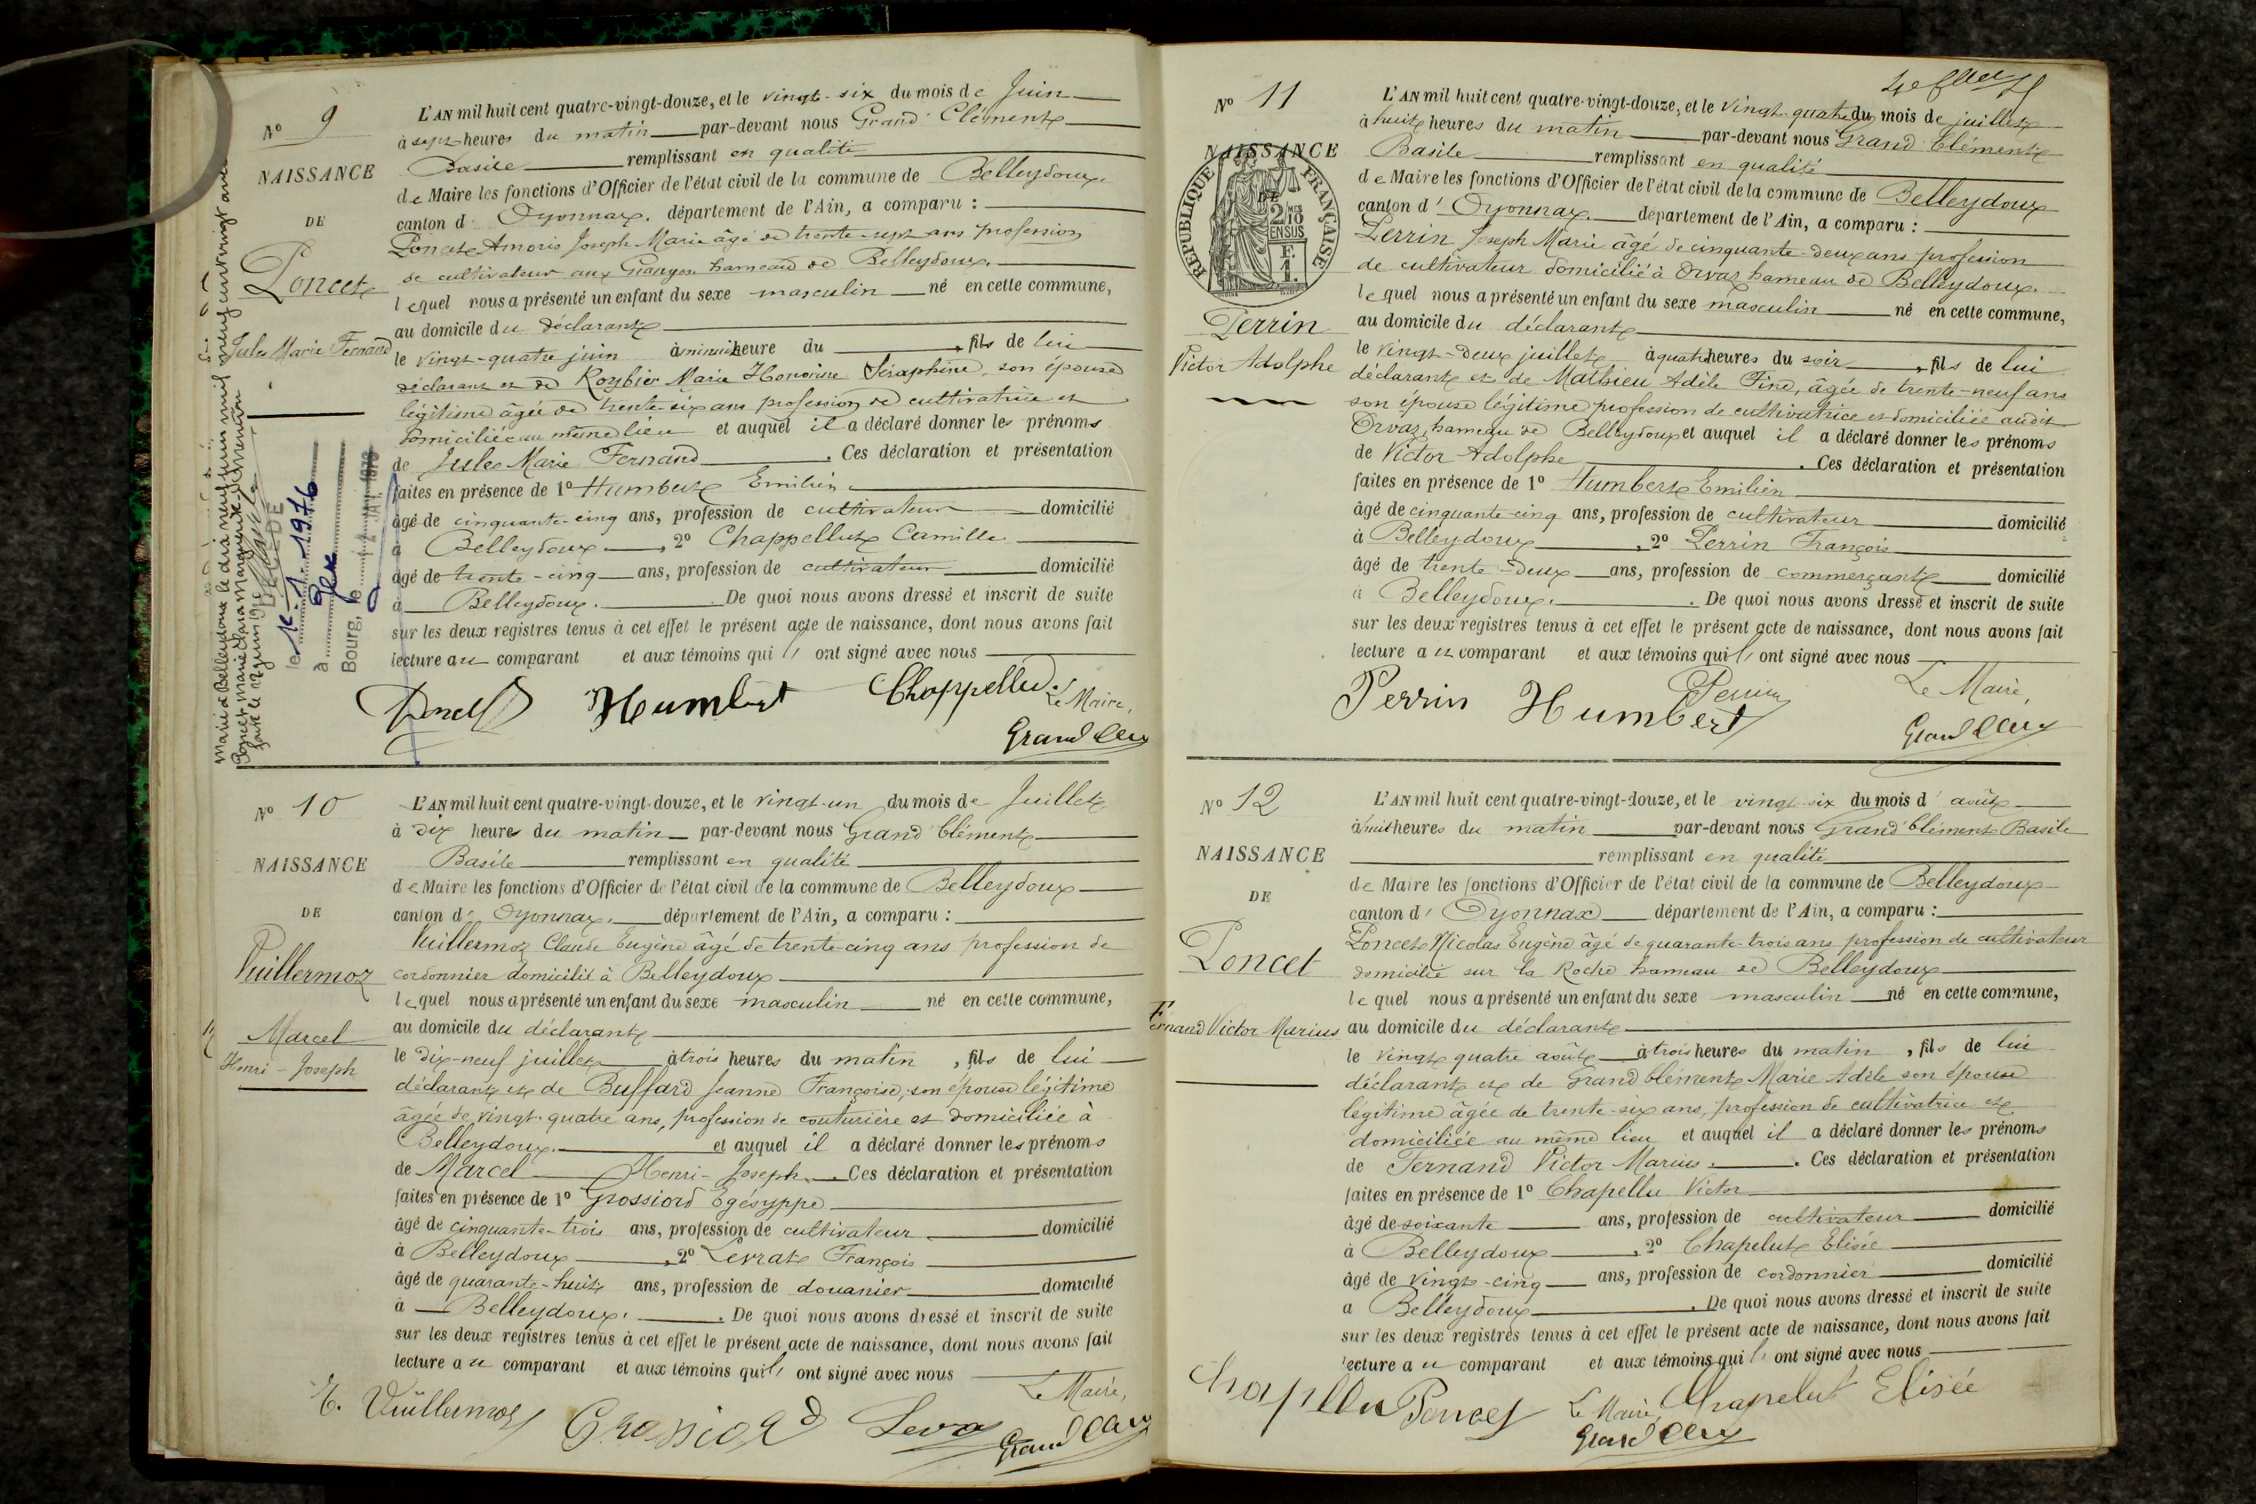 N° 9
NAISSANCE
DE
Poncet
Jules Marie Fernand
L'AN mil huit cent quatre-vingt-douze, et le vingt-six du mois de Juin
à sept heures du matin par-devant nous Grand Clément
Basile remplissant en qualité
de Maire les fonctions d'Officier de l'état civil de la commune de Belleydoux
canton d' Oyonnax. département de l'Ain, a comparu :
Poncet Joseph Marie âgé de trente-sept ans profession
de cultivateur aux Granges hameau de Belleydoux.
lequel nous a présenté un enfant du sexe masculin né en cette commune,
au domicile du déclarant
le vingt-quatre juin à minuit heure du , fils de lui
déclarant et de Roybier Marie Honorine Séraphine, son épouse
légitime âgée de trente-six ans profession de cultivatrice et
domiciliée au même lieu et auquel il a déclaré donner les prénoms
de Jules Marie Fernand . Ces déclaration et présentation
faites en présence de 1° Humbert Emilien
âgé de cinquante-cinq ans, profession de cultivateur domicilié
à Belleydoux , 2° Chappellut Camille
âgé de trente-cinq ans, profession de cultivateur domicilié
à Belleydoux. De quoi nous avons dressé et inscrit de suite
sur les deux registres tenus à cet effet le présent acte de naissance, dont nous avons fait
lecture au comparant et aux témoins qui ont signé avec nous
Poncet Humbert Chappellu
Le Maire,
Grand Clém
Marié à Belleydoux le
DÉCÉDÉ
le 1-1-1976
à Gex
Bourg, le
N° 10
NAISSANCE
DE
Vuillermoz
Marcel
Henri-Joseph
L'AN mil huit cent quatre-vingt-douze, et le vingt-un du mois de Juillet
à dix heures du matin par-devant nous Grand Clément
Basile remplissant en qualité
de Maire les fonctions d'Officier de l'état civil de la commune de Belleydoux
canton d' Oyonnax. département de l'Ain, a comparu :
Vuillermoz Claude Eugène âgé de trente-cinq ans profession de
cordonnier domicilié à Belleydoux
lequel nous a présenté un enfant du sexe masculin né en cette commune,
au domicile du déclarant
le dix-neuf juillet à trois heures du matin , fils de lui
déclarant et de Buffard Jeanne Françoise, son épouse légitime
âgée de vingt-quatre ans, profession de couturière et domiciliée à
Belleydoux. et auquel il a déclaré donner les prénoms
de Marcel Henri-Joseph. Ces déclaration et présentation
faites en présence de 1° Grossiord Egésyppe
âgé de cinquante-trois ans, profession de cultivateur domicilié
à Belleydoux , 2° Levrat François
âgé de quarante-huit ans, profession de douanier domicilié
à Belleydoux. De quoi nous avons dressé et inscrit de suite
sur les deux registres tenus à cet effet le présent acte de naissance, dont nous avons fait
lecture au comparant et aux témoins qui ont signé avec nous
E. Vuillermoz Grossiord Levra
Le Maire,
Grand Clém
N° 11
NAISSANCE
DE
RÉPUBLIQUE FRANÇAISE
Perrin
Victor Adolphe
L'AN mil huit cent quatre-vingt-douze, et le vingt-quatre du mois de juillet
à huit heures du matin par-devant nous Grand Clément
Basile remplissant en qualité
de Maire les fonctions d'Officier de l'état civil de la commune de Belleydoux
canton d' Oyonnax. département de l'Ain, a comparu :
Perrin Joseph Marie âgé de cinquante-deux ans profession
de cultivateur domicilié à Orvaz hameau de Belleydoux.
lequel nous a présenté un enfant du sexe masculin né en cette commune,
au domicile du déclarant
le vingt-deux juillet à quatre heures du soir , fils de lui
déclarant et de Mathieu Adèle Fine, âgée de trente-neuf ans
son épouse légitime profession de cultivatrice et domiciliée audit
Orvaz, hameau de Belleydoux et auquel il a déclaré donner les prénoms
de Victor Adolphe . Ces déclaration et présentation
faites en présence de 1° Humbert Emilien
âgé de cinquante-cinq ans, profession de cultivateur domicilié
à Belleydoux , 2° Perrin François
âgé de trente-deux ans, profession de commerçant domicilié
à Belleydoux. De quoi nous avons dressé et inscrit de suite
sur les deux registres tenus à cet effet le présent acte de naissance, dont nous avons fait
lecture au comparant et aux témoins qui ont signé avec nous
Perrin Humbert Perrin
Le Maire,
Grand Clém
N° 12
NAISSANCE
DE
Poncet
Fernand Victor Marius
L'AN mil huit cent quatre-vingt-douze, et le vingt-six du mois d' août
à huit heures du matin par-devant nous Grand Clément Basile
remplissant en qualité
de Maire les fonctions d'Officier de l'état civil de la commune de Belleydoux
canton d' Oyonnax département de l'Ain, a comparu :
Poncet Nicolas Eugène âgé de quarante-trois ans profession de cultivateur
domicilié sur la Roche hameau de Belleydoux
lequel nous a présenté un enfant du sexe masculin né en cette commune,
au domicile du déclarant
le vingt quatre août à trois heures du matin , fils de lui
déclarant et de Grand Clément Marie Adèle son épouse
légitime âgée de trente-six ans, profession de cultivatrice et
domiciliée au même lieu et auquel il a déclaré donner les prénoms
de Fernand Victor Marius. Ces déclaration et présentation
faites en présence de 1° Chapellu Victor
âgé de soixante ans, profession de cultivateur domicilié
à Belleydoux , 2° Chapelut Elisée
âgé de vingt-cinq ans, profession de cordonnier domicilié
a Belleydoux . De quoi nous avons dressé et inscrit de suite
sur les deux registres tenus à cet effet le présent acte de naissance, dont nous avons fait
lecture au comparant et aux témoins qui ont signé avec nous
Chapellu Poncet Le Maire, Chapelut Elisée
Grand Clém